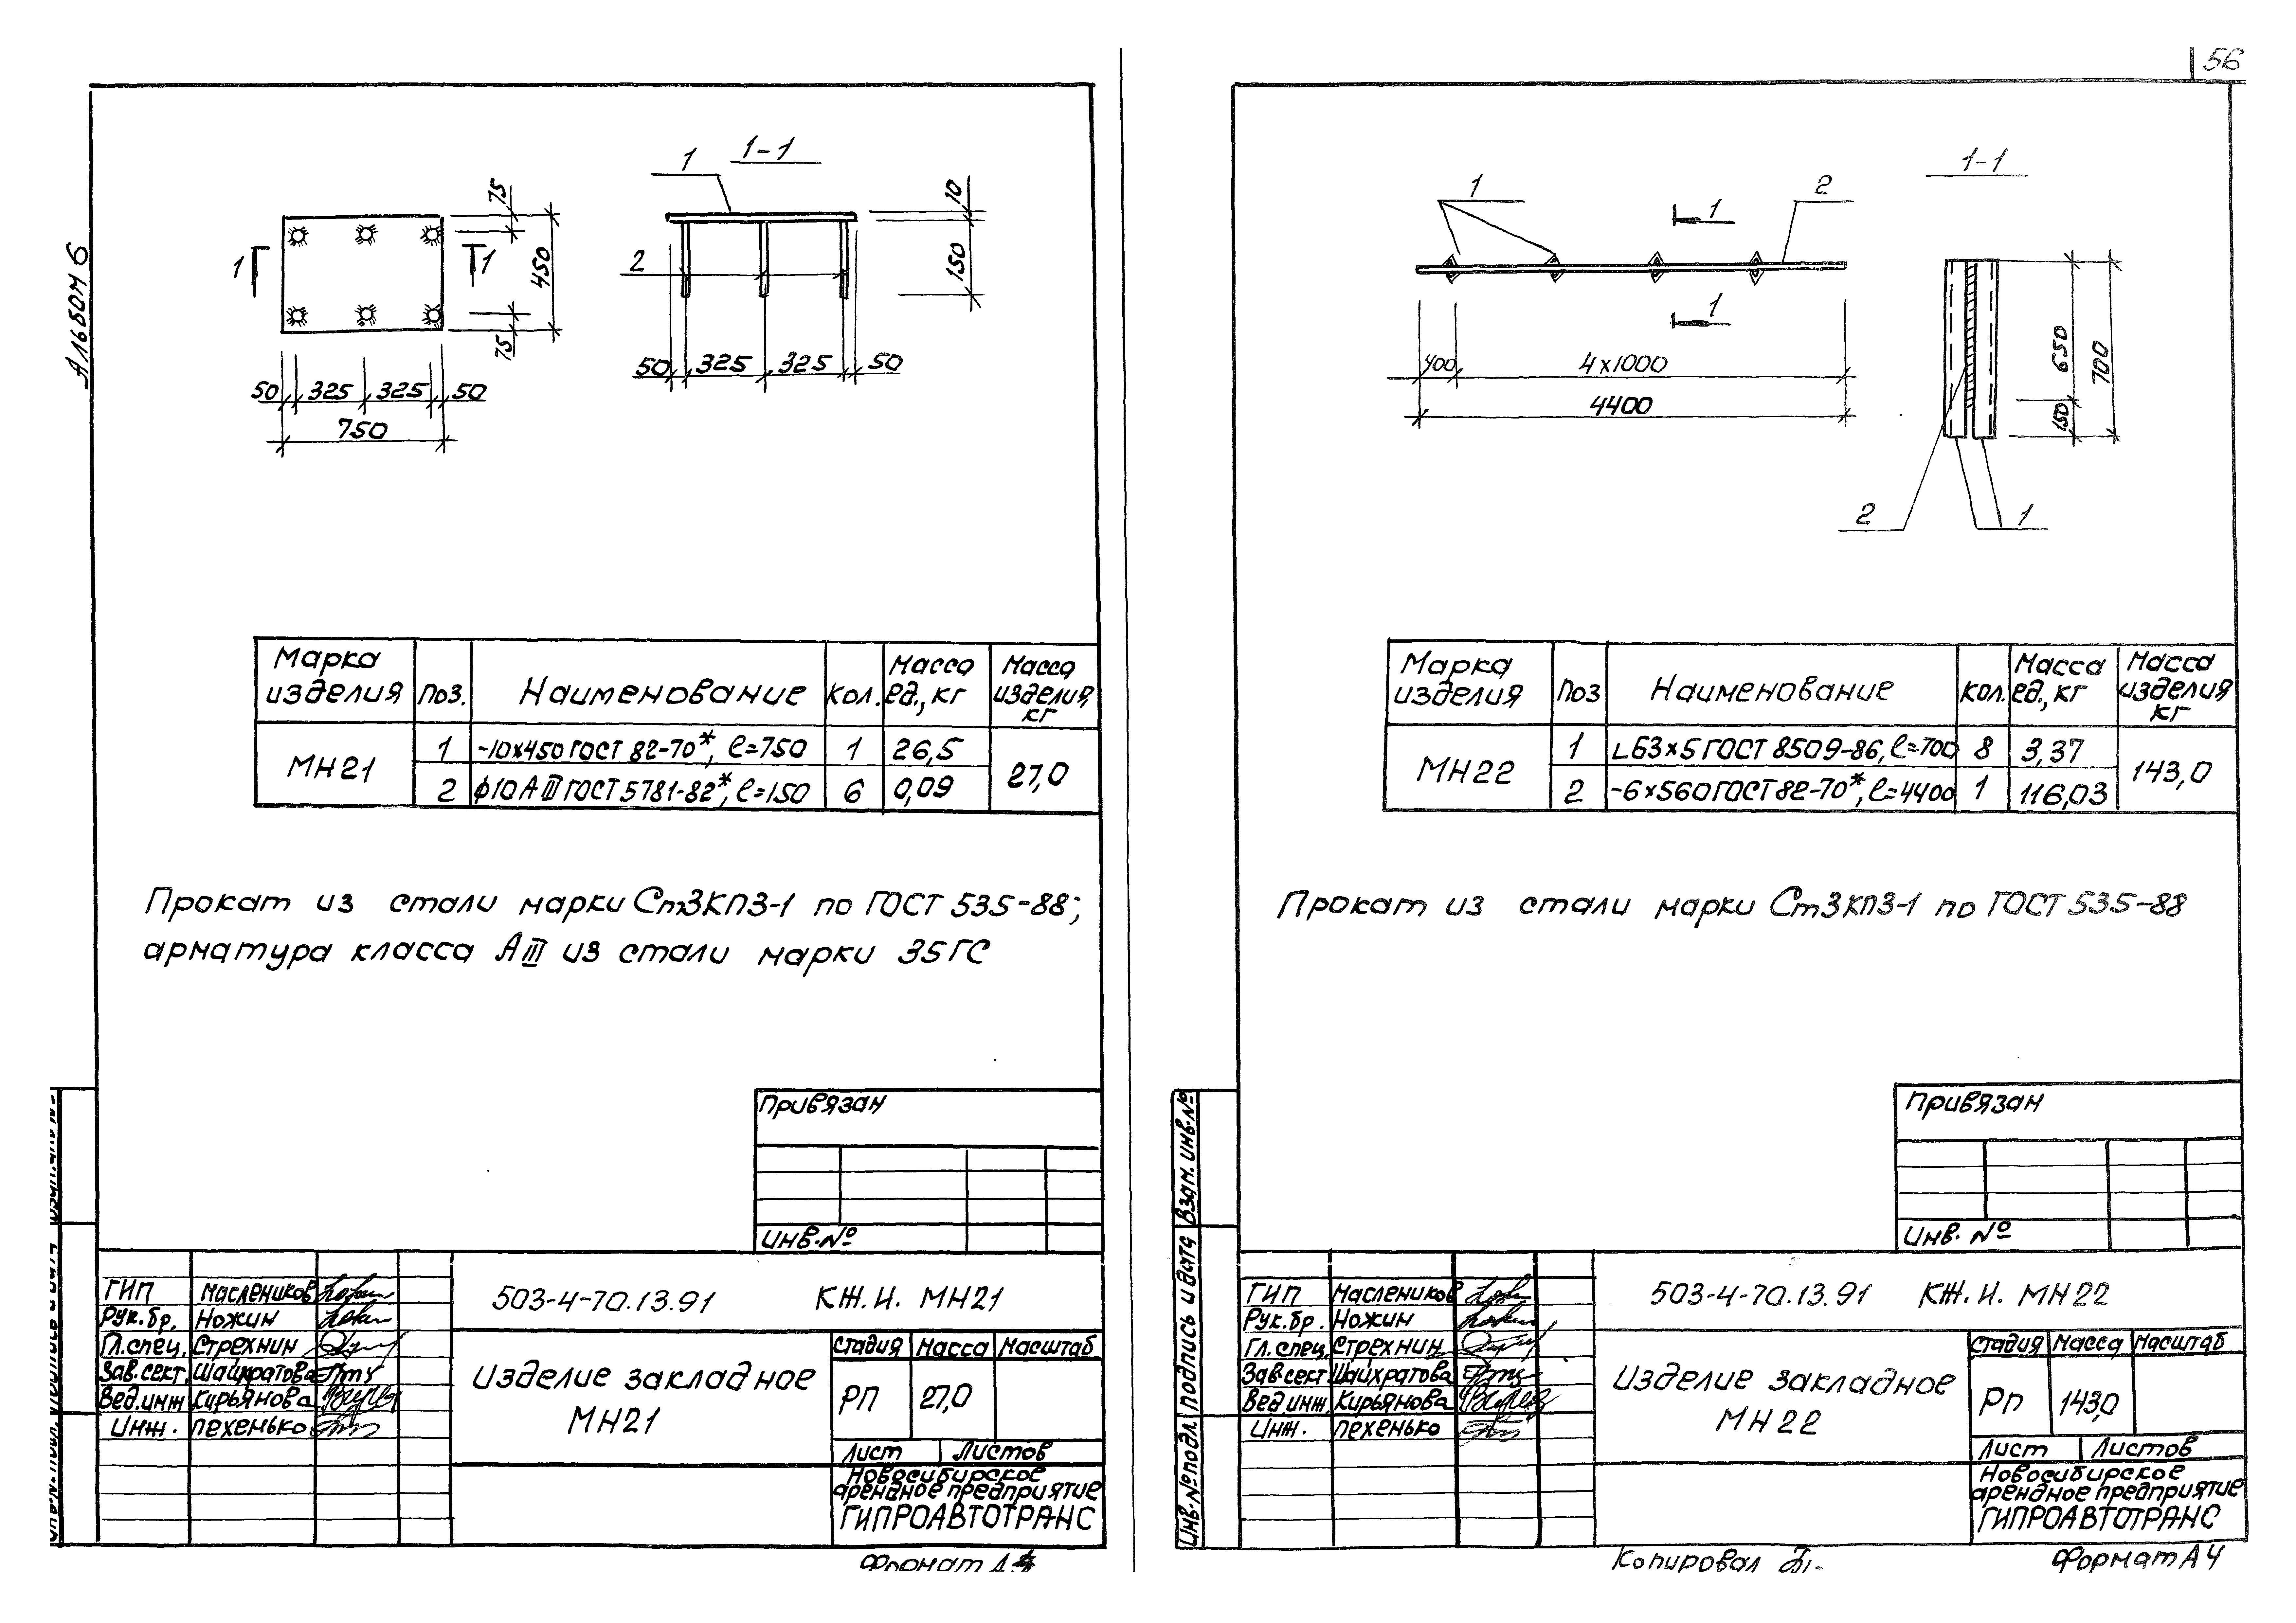 56
Альбом 6
1-1
1
75
450
75
1
1
50 325 325 50
750
2
10
150
50 325 325 50
Марка изделия
Поз.
Наименование
Кол.
Масса ед., кг
Масса изделия, кг
МН21
1 -10×450 ГОСТ 82-70*, ℓ=750 1 26,5
2 ϕ10 АIII ГОСТ 5781-82*, ℓ=150 6 0,09
27,0
Прокат из стали марки Ст3КП3-1 по ГОСТ 535-88;
арматура класса АIII из стали марки 35ГС
Привязан
Инв.№
ГИП Маслеников
Рук.бр. Ножин
Гл.спец. Стрехнин
Зав.сект. Шайхратова
Вед.инж Кирьянова
Инж. Пехенько
503-4-70.13.91 КЖ.И. МН21
Изделие закладное
МН21
Стадия Масса Масштаб
РП 27,0
Лист Листов
Новосибирское
арендное предприятие
ГИПРОАВТОТРАНС
Формат А4
1-1
1
2
1
1
400
4×1000
4400
650
150
700
2
1
Марка изделия
Поз
Наименование
Кол.
Масса ед., кг
Масса изделия кг
МН22
1 ∟63×5 ГОСТ 8509-86, ℓ=700 8 3,37
2 -6×560 ГОСТ 82-70*, ℓ=4400 1 116,03
143,0
Прокат из стали марки Ст3КП3-1 по ГОСТ 535-88
Привязан
Инв. №
Взам. инв.№
Подпись и дата
Инв.№ подл.
ГИП Маслеников
Рук.бр. Ножин
Гл.спец. Стрехнин
Зав.сект Шайхратова
Вед.инж. Кирьянова
Инж. Пехенько
503-4-70.13.91 КЖ.И. МН22
Изделие закладное
МН22
Стадия Масса Масштаб
РП 143,0
Лист Листов
Новосибирское
арендное предприятие
ГИПРОАВТОТРАНС
Копировал
Формат А4